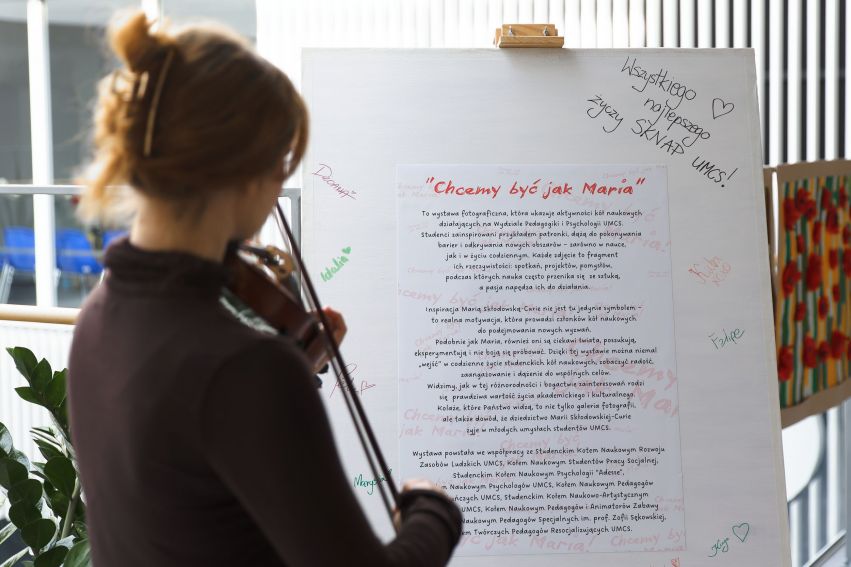 Wszystkiego
najlepszego
życzy SKNAP UMCS!
"Chcemy być jak Maria"
To wystawa fotograficzna, która ukazuje aktywności kół naukowych
działających na Wydziale Pedagogiki i Psychologii UMCS.
Studenci zainspirowani przykładem patronki, dążą do pokonywania
barier i odkrywania nowych obszarów – zarówno w nauce,
jak i w życiu codziennym. Każde zdjęcie to fragment
ich rzeczywistości: spotkań, projektów, pomysłów,
podczas których nauka często przenika się ze sztuką,
a pasja napędza ich do działania.
Inspiracja Marią Skłodowską-Curie nie jest tu jedynie symbolem –
to realna motywacja, która prowadzi członków kół naukowych
do podejmowania nowych wyzwań.
Podobnie jak Maria, również oni są ciekawi świata, poszukują,
eksperymentują i nie boją się próbować. Dzięki tej wystawie można niemal
„wejść" w codzienne życie studenckich kół naukowych, zobaczyć radość,
zaangażowanie i dążenie do wspólnych celów.
Widzimy, jak w tej różnorodności i bogactwie zainteresowań rodzi
się prawdziwa wartość życia akademickiego i kulturalnego.
Kolaże, które Państwo widzą, to nie tylko galeria fotografii,
ale także dowód, że dziedzictwo Marii Skłodowskiej-Curie
żyje w młodych umysłach studentów UMCS.
Wystawa powstała we współpracy ze Studenckim Kołem Naukowym Rozwoju
Zasobów Ludzkich UMCS, Kołem Naukowym Studentów Pracy Socjalnej,
Studenckim Kołem Naukowym Psychologii "Adesse",
Naukowym Psychologów UMCS, Kołem Naukowym Pedagogiki
UMCS, Studenckim Kołem Naukowo-Artystycznym
UMCS, Kołem Naukowym Pedagogów i Animatorów Zabawy
Naukowym Pedagogów Specjalnych im. prof. Zofii Sękowskiej,
Twórczych Pedagogów Resocjalizujących UMCS.
Idalia
Kinga